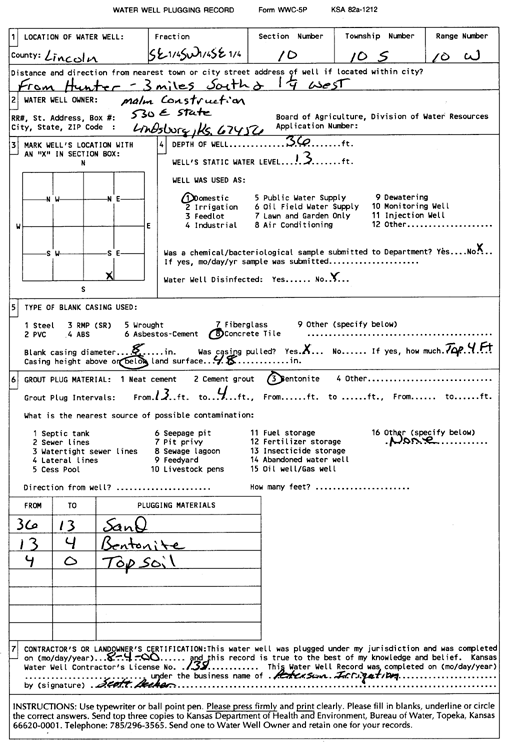 WATER WELL PLUGGING RECORD Form WWC-5P KSA 82a-1212
1 LOCATION OF WATER WELL: Fraction Section Number Township Number Range Number
County: Lincoln SE 1/4 SW 1/4 SE 1/4 10 10 S 10 W
Distance and direction from nearest town or city street address of well if located within city?
From Hunter - 3 miles South & 1 1/4 West
2 WATER WELL OWNER: Malm Construction
RR#, St. Address, Box #: 530 E State Board of Agriculture, Division of Water Resources
City, State, ZIP Code : Lindsburg, Ks. 67456 Application Number:
3 MARK WELL'S LOCATION WITH AN "X" IN SECTION BOX:
N
N W N E
W E
S W S E
X
S
4 DEPTH OF WELL....36....ft.
WELL'S STATIC WATER LEVEL...13....ft.
WELL WAS USED AS:
1 Domestic 5 Public Water Supply 9 Dewatering
2 Irrigation 6 Oil Field Water Supply 10 Monitoring Well
3 Feedlot 7 Lawn and Garden Only 11 Injection Well
4 Industrial 8 Air Conditioning 12 Other................
Was a chemical/bacteriological sample submitted to Department? Yes....No..X
If yes, mo/day/yr sample was submitted....................
Water Well Disinfected: Yes...... No..X..
5 TYPE OF BLANK CASING USED:
1 Steel 3 RMP (SR) 5 Wrought 7 Fiberglass 9 Other (specify below)
2 PVC 4 ABS 6 Asbestos-Cement 8 Concrete Tile ................
Blank casing diameter...8.....in. Was casing pulled? Yes.X... No...... If yes, how much.Top 4 Ft
Casing height above or below land surface..48........in.
6 GROUT PLUG MATERIAL: 1 Neat cement 2 Cement grout 3 Bentonite 4 Other................
Grout Plug Intervals: From.13..ft. to..4..ft., From......ft. to ......ft., From...... to......ft.
What is the nearest source of possible contamination:
1 Septic tank 6 Seepage pit 11 Fuel storage 16 Other (specify below)
2 Sewer lines 7 Pit privy 12 Fertilizer storage .None................
3 Watertight sewer lines 8 Sewage lagoon 13 Insecticide storage
4 Lateral lines 9 Feedyard 14 Abandoned water well
5 Cess Pool 10 Livestock pens 15 Oil well/Gas well
Direction from well? .................... How many feet? ....................
FROM TO PLUGGING MATERIALS
36 13 Sand
13 4 Bentonite
4 0 Top Soil
7 CONTRACTOR'S OR LANDOWNER'S CERTIFICATION: This water well was plugged under my jurisdiction and was completed
on (mo/day/year)...8-4-00...... and this record is true to the best of my knowledge and belief. Kansas
Water Well Contractor's License No. .138............. This Water Well Record was completed on (mo/day/year)
.................... under the business name of Peterson Irrigation
by (signature) Scott
INSTRUCTIONS: Use typewriter or ball point pen. Please press firmly and print clearly. Please fill in blanks, underline or circle
the correct answers. Send top three copies to Kansas Department of Health and Environment, Bureau of Water, Topeka, Kansas
66620-0001. Telephone: 785/296-3565. Send one to Water Well Owner and retain one for your records.